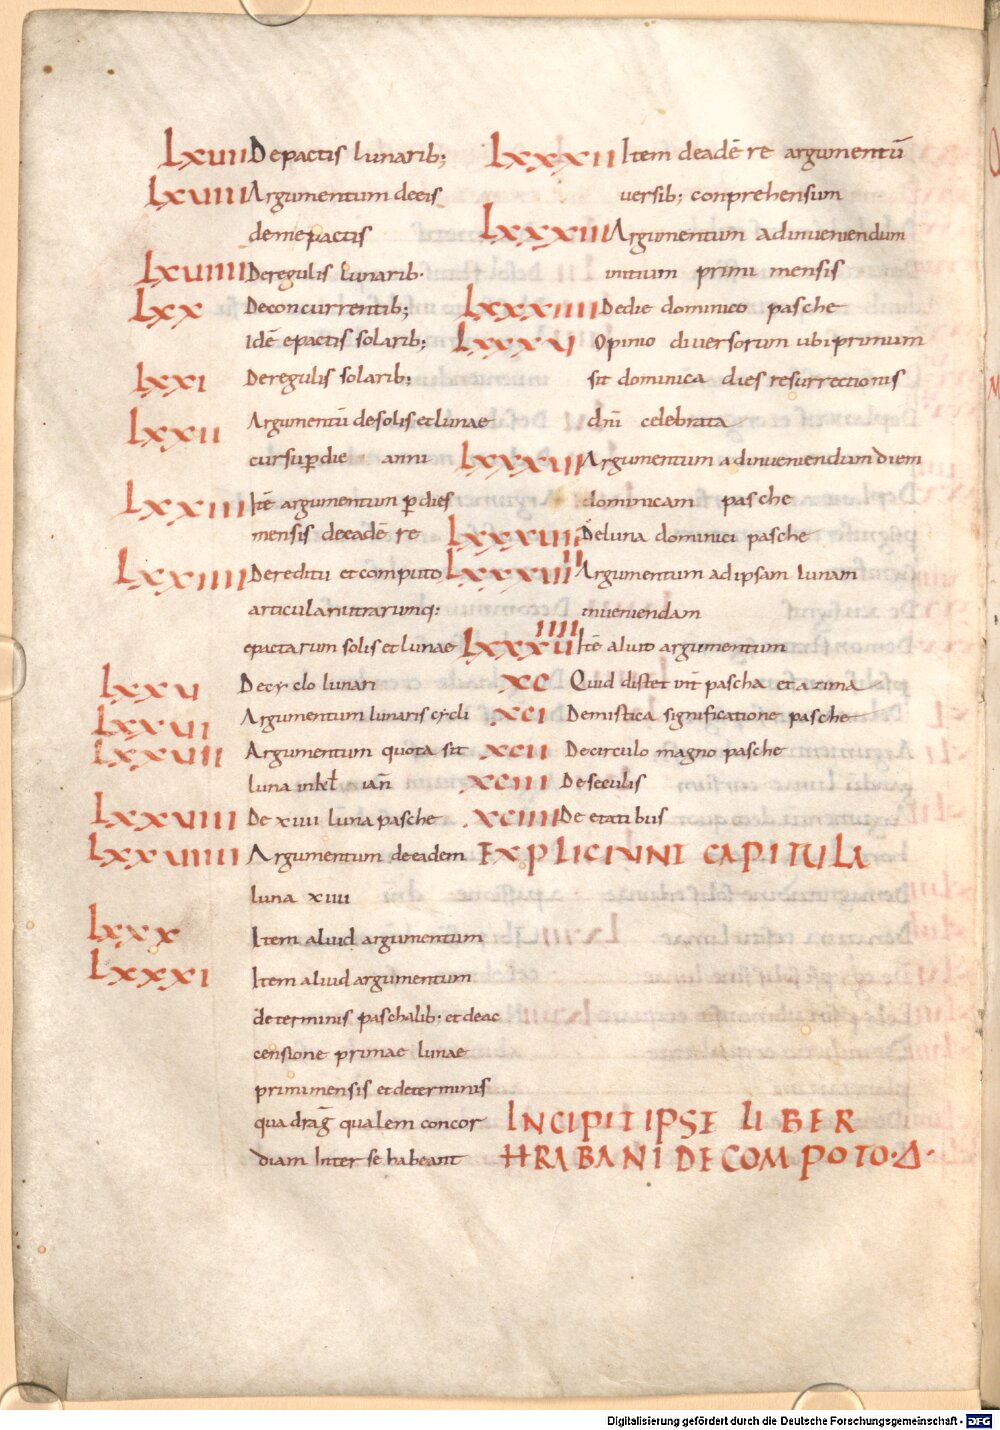 LXVII De pactis lunarib;
LXVIII Argumentum de eis
dem epactis
LXVIIII De regulis lunarib·
LXX De concurrentib;
Idē epactis solarib;
LXXI De regulis solarib;
LXXII Argumentū de solis et lunae
cursu ꝑ die anni
LXXIII Itē argumentum ꝑ dies
mensis de eadē re
LXXIIII De reditu et computo
articulari utrarumq;
epactarum solis et lunae
LXXV De cyclo lunari
LXXVI Argumentum lunaris cycli
LXXVII Argumentum quota sit
luna in kł ian̄
LXXVIII De XIIII luna pasche
LXXVIIII Argumentum de eadem
luna XIIII
LXXX Item aliud argumentum
LXXXI Item aliud argumentum
de terminis paschalib; et de ac
censione primae lunae
primi mensis et de terminis
quadrag̅ qualem concor
diam inter se habeant
LXXXII Item de adē re argumentū
versib; conprehensum
LXXXIII Argumentum ad inueniendum
initium primi mensis
LXXXIIII De die dominico pasche
LXXXV Opinio diuersorum ubi primum
sit dominica dies resurrectionis
dn̄i celebrata
LXXXVI Argumentum ad inueniendum diem
dominicam pasche
LXXXVII De luna dominici pasche
LXXXVIII Argumentum ad ipsam lunam
inueniendam
LXXXVIIII Itē aliud argumentum
XC Quid distet int̄ pascha et azima
XCI De mistica significatione pasche
XCII De circulo magno pasche
XCIII De seculis
XCIIII De etatibus
EXPLICIUNT CAPITULA
INCIPIT IPSE LIBER
HRABANI DE COMPOTO·Δ·
Digitalisierung gefördert durch die Deutsche Forschungsgemeinschaft - DFG